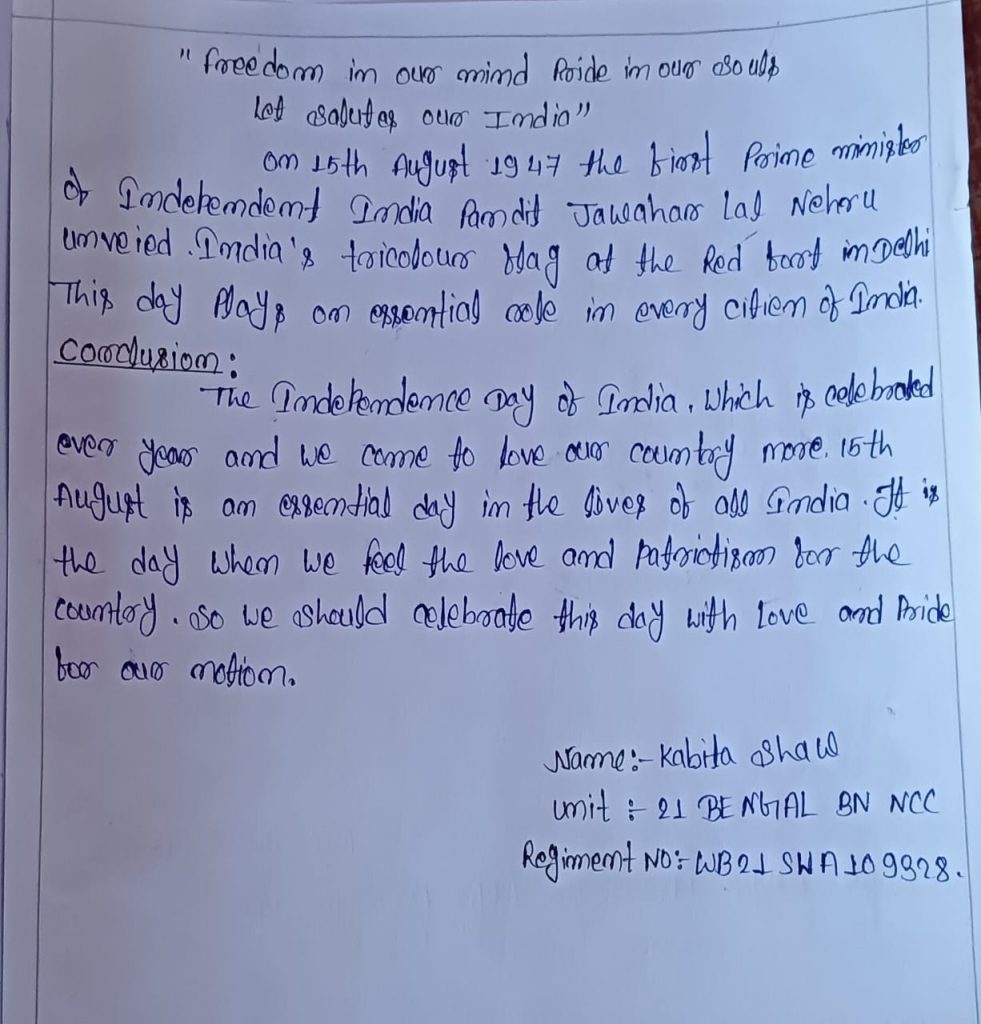 " freedom in our mind Pride in our souls
Let salutes our India"
on 15th August 1947 the first Prime minister
of Independent India Pandit Jawahar Lal Nehru
unveied India's tricolour flag at the Red fort in Delhi
This day Plays on essential role in every citien of India.
Conclusion :
The Independence Day of India, which is celebrated
ever year and we come to love our country more. 15th
August is an essential day in the lives of all India. It is
the day when we feel the love and Patriotism for the
country. so we should celebrate this day with love and Pride
for our nation.
Name:- Kabita Shaw
unit :- 21 BENGAL BN NCC
Regiment NO:- WB21 SWA109928.